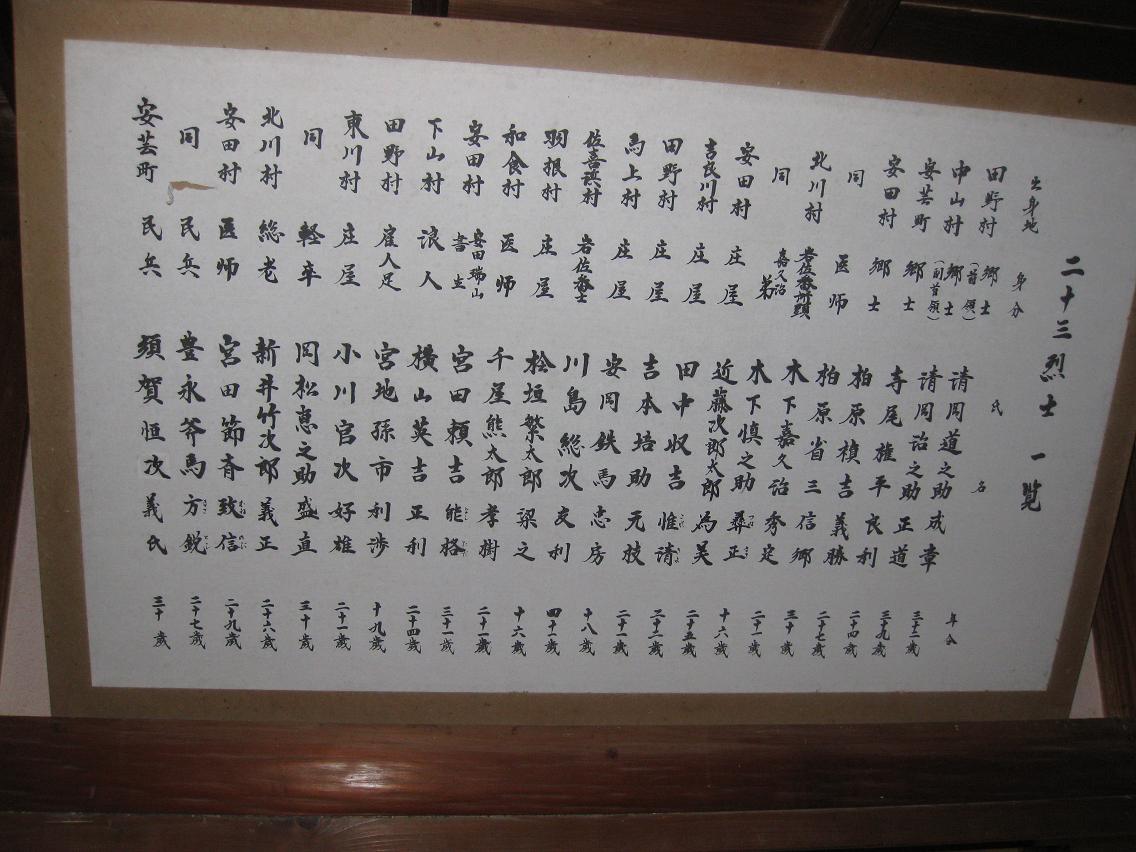 二十三烈士一覧
出身地 身分 氏名 年令
田野村 郷士(首領) 清岡道之助 成章 三十二歳
中山村 郷士(副首領) 清岡治之助 正道 三十九歳
安芸町 郷士 寺尾権平 良利 二十四歳
安田村 郷士 柏原禎吉 義勝 二十七歳
同 医師 柏原省三 信郷 三十歳
北川村 岩佐番所頭 木下嘉久治 秀定 二十一歳
同 嘉久治弟 木下慎之助 彝正 十六歳
安田村 庄屋 近藤次郎太郎 為美 二十五歳
吉良川村 庄屋 田中収吉 惟清 二十二歳
田野村 庄屋 吉本培助 元枝 二十一歳
馬上村 庄屋 安岡鉄馬 忠房 十八歳
佐喜浜村 岩佐番士 川島総次 友利 四十一歳
羽根村 庄屋 桧垣繁太郎 梁之 十六歳
和食村 医師 千屋熊太郎 孝樹 二十一歳
安田村 安田瑞山書生 宮田頼吉 能格 三十一歳
下山村 浪人 横山英吉 正利 二十四歳
田野村 雇人足 宮地孫市 利渉 十九歳
東川村 庄屋 小川官次 好雄 二十一歳
同 軽卒 岡松恵之助 盛直 三十歳
北川村 総老 新井竹次郎 義正 二十六歳
安田村 医師 宮田節斎 致信 二十九歳
同 民兵 豊永斧馬 方鋭 二十七歳
安芸町 民兵 須賀恒次 義氏 三十歳